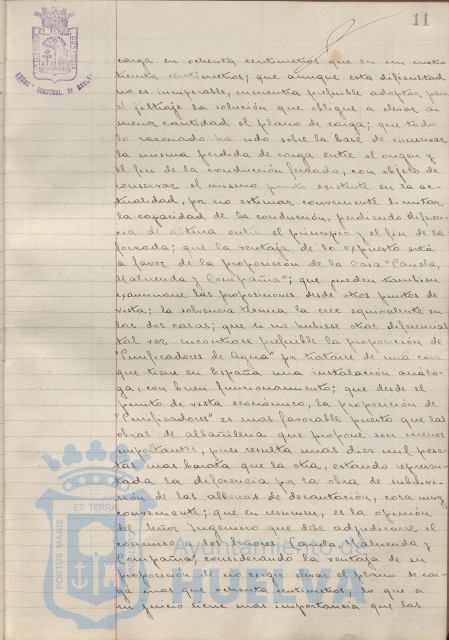 11
carga en ochenta centímetros que en un metro
treinta centímetros; que aunque esta dificultad
no es insuperable, encuentra preferible adoptar para
el filtraje la solución que obligue a elevar en
menor cantidad el plano de carga; que todo
lo razonado ha sido sobre la base de conservar
la misma perdida de carga entre el origen y
el fin de la conducción forzada, con objeto de
conservar el mismo punto existente en la ac-
tualidad, por no estimar conveniente limitar
la capacidad de la conducción, perdiendo diferen-
cia de altura entre el principio y el fin de la
forzada; que la ventaja de lo expuesto está
a favor de la proposición de la Casa "Candela,
Maluenda y Compañía"; que pueden tambien
examinarse las proposiciones desde otros puntos de
vista; la solvencia técnica la cree equivalente en
las dos casas; que si no hubiese otras diferencias
tal vez encontrase preferible la proposición de
"Purificadores de Agua" por tratarse de una casa
que tiene en España una instalación análo-
ga, con buen funcionamiento; que desde el
punto de vista económico, la proposición de
"Purificadores" es mas favorable puesto que las
obras de albañilería que propone son menos
importantes, pues resulta unas diez mil pese-
tas mas barata que la otra, estando represen-
tada la diferencia por la obra de subdivi-
sión de las albercas de decantación, cosa muy
conveniente; que en resumen, es la opinión
del Señor Ingeniero que debe adjudicarse el
concurso a los Señores Maluenda y
Compañía, considerando la ventaja de su
proposición de no exigir elevar el plano de car-
ga mas que ochenta centímetros, lo que a
su juicio tiene mas importancia que las
PORTUS MARIS
ET TERRAE
Ayuntamiento de
HUELVA